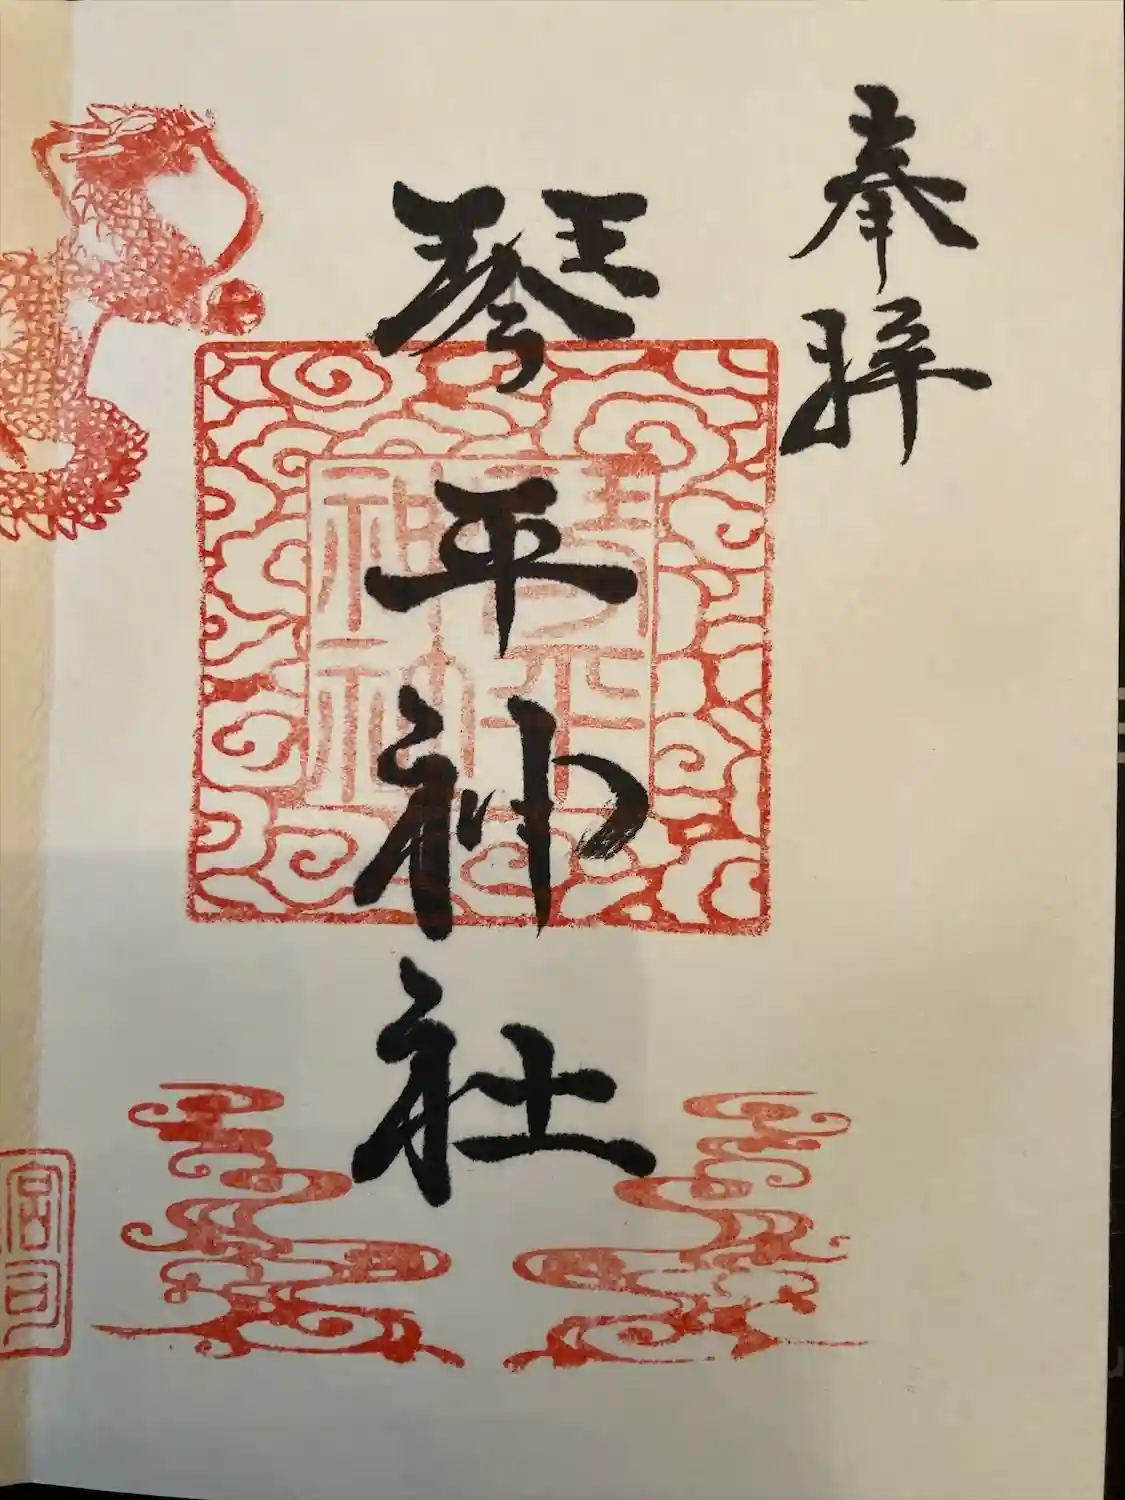 奉拝
琴平神社
琴平
神社
宮司